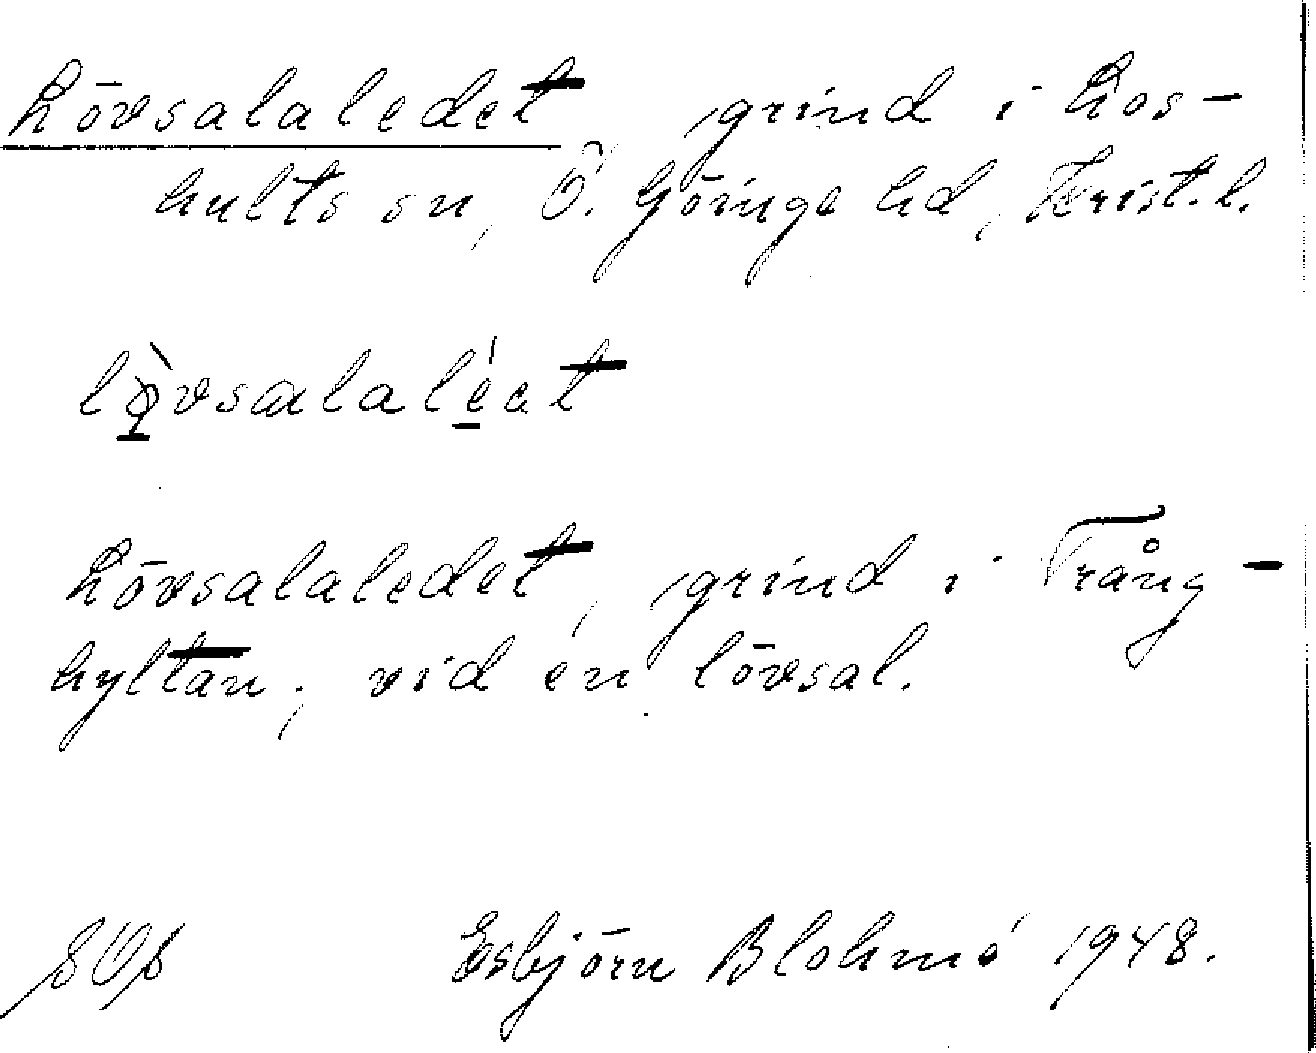 Lövsalaledet, grind i Los-
hults sn, Ö. Göinge hd, Krist. l.
lø̀vsalaléat
Lövsalaledet, grind i Trång-
hyltan; vid en lövsal.
Esbjörn Blohmé 1948.